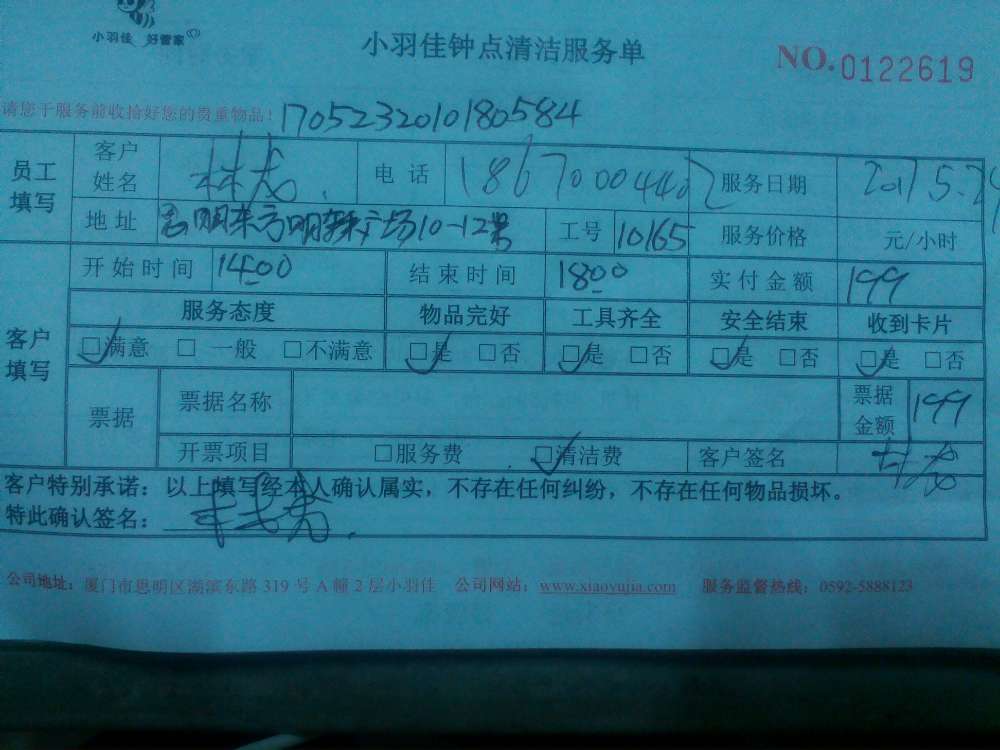 小羽佳 好管家
小羽佳钟点清洁服务单
NO.0122619
请您于服务前收拾好您的贵重物品!
1705232010180584
员工填写
客户姓名
电话
服务日期
地址 10-12号
工号 10165
服务价格 元/小时
客户填写
开始时间 1400
结束时间 1800
实付金额 199
服务态度 物品完好 工具齐全 安全结束 收到卡片
□满意 □一般 □不满意 □是 □否 □是 □否 □是 □否 □是 □否
票据
票据名称
票据金额 199
开票项目 □服务费 □清洁费 客户签名
客户特别承诺:以上填写经本人确认属实,不存在任何纠纷,不存在任何物品损坏。
特此确认签名:
公司地址:厦门市思明区湖滨东路 319 号 A 幢 2 层小羽佳 公司网站:www.xiaoyujia.com 服务监督热线:0592-5888123